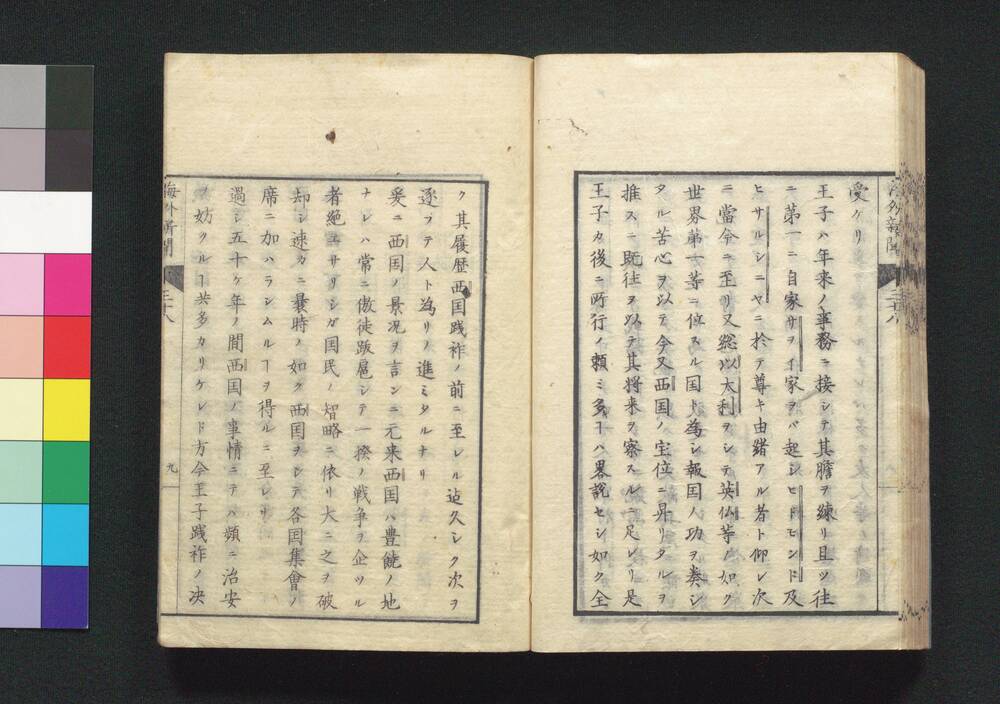 海外新聞
受ケリ
王子ハ年来ノ事務ニ接シテ其膽ヲ練リ且ツ往
ニ第一ニ自家サヲイ家ヲバ起シヒドモンド及
ヒサルシニヤニ於テ尊キ由緒アル者ト仰レ次
ニ當今ニ至リ又総以太利ヲシテ英仏等ノ如ク
世界第一等ニ位スル国ト為シ報国ノ功ヲ奏シ
タル苦心ヲ以テ今又西国ノ宝位ニ昇リタルヲ
推スニ既往ヲ以テ其将来ヲ察スルニ足レリ是
王子カ後ニ所行ノ頼ミ多キヿハ畧説セシ如ク全
ク其履歴西国践祚ノ前ニ至レル迠久シク次ヲ
逐フテ人ト為リノ進ミタルナリ
爰ニ西国ノ景况ヲ言ンニ元来西国ハ豊饒ノ地
ナレハ常ニ傲徒跋扈シテ一揆ノ戦争ヲ企ツル
者絶エサリシガ国民ノ智略ニ依リ大ニ之ヲ破
却シ速カニ曩時ノ如ク西国ヲシテ各国集會ノ
席ニ加ハラシムルヿヲ得ルニ至レリ
過シ五十ケ年ノ間西国ノ事情ニテハ頻ニ治安
ノ妨クルヿ共多カリケレド方今王子践祚ノ决
海外新聞
三十八
九